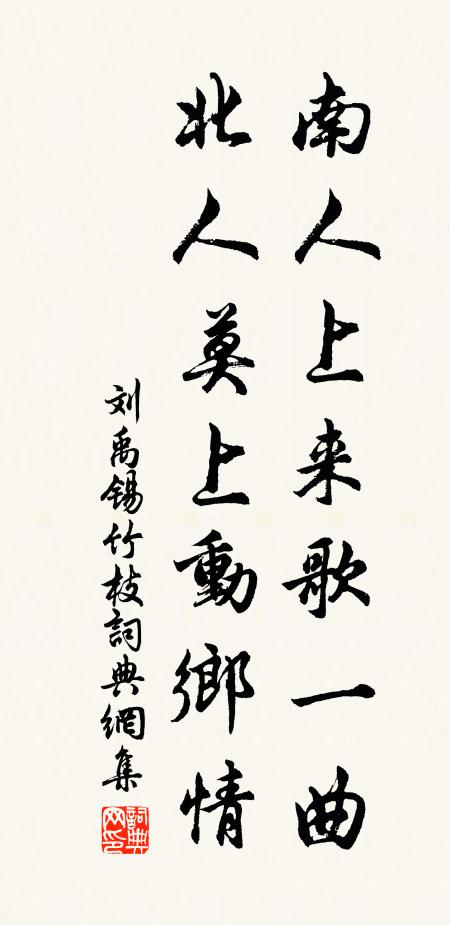 南人上来歌一曲
北人莫上動鄉情
刘禹锡竹枝詞典網集
詞典网印